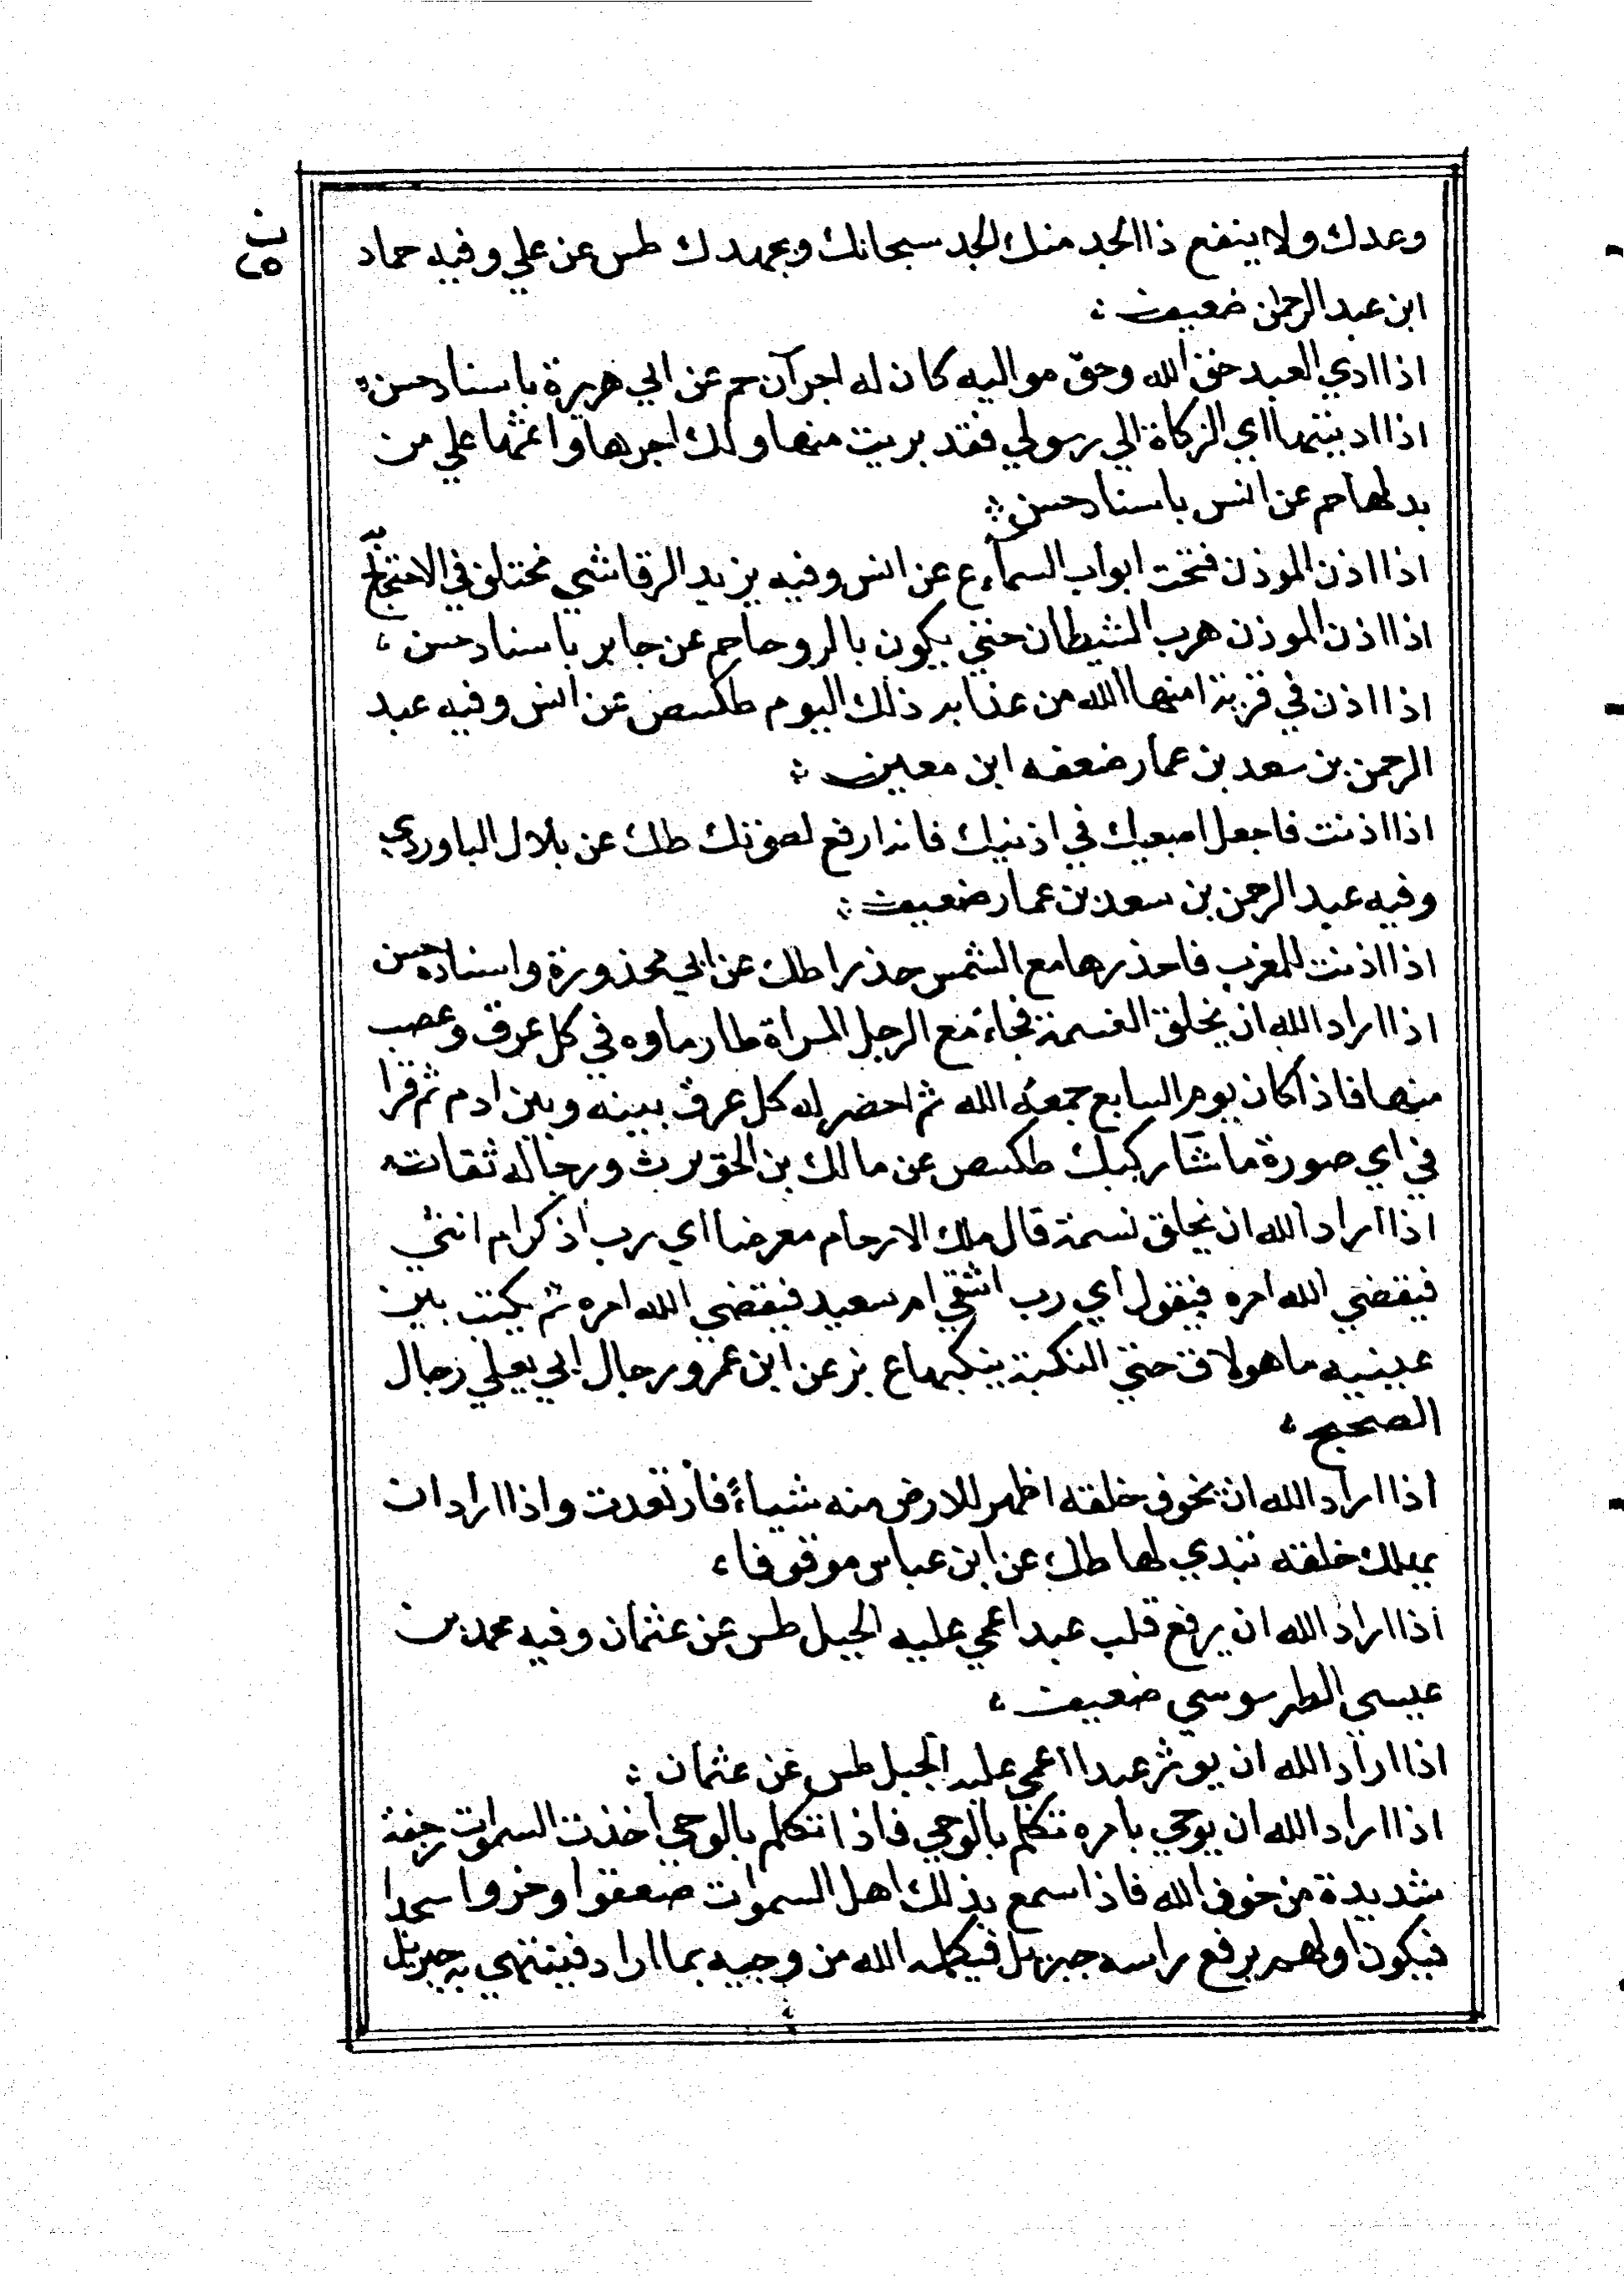 وعدك ولا ينفع ذا الجد منك الجد سبحانك وبحمدك طس عن علي وفيه حماد
ابن عبد الرحمن ضعيف
اذا ادي العبد حق الله وحق مواليه كان له اجرآن حم عن ابي هريرة باسناد حسن
اذا اديتها اي الزكاة الي رسولي فقد بريت منها ولك اجرها واثمها علي من
بدلها حم عن انس باسناد حسن
اذا اذن الموذن فتحت ابواب السماء ع عن انس وفيه يزيد الرقاشي مختلف في الاحتجاج به
اذا اذن الموذن هرب الشيطان حتي يكون بالروحا حم عن جابر باسناد حسن
اذا اذن في قرية امنها الله من عذابه ذلك اليوم طكسص عن انس وفيه عبد
الرحمن بن سعد بن عمار ضعفه ابن معين
اذا اذنت فاجعل اصبعيك في اذنيك فانه ارفع لصوتك طك عن بلال الباوردي
وفيه عبد الرحمن بن سعد بن عمار ضعيف
اذا اذنت للمغرب فاحذرها مع الشمس حذرا طك عن ابي محذورة واسناده حسن
اذا اراد الله ان يخلق النسمة فجاء مع الرجل المراة طار ماوه في كل عرق وعصب
منها فاذا كان يوم السابع جمعه الله ثم احضر له كل عرق بينه وبين ادم ثم قرا
في اي صورة ما شآ ركبك طكسص عن مالك بن الحويرث ورجاله ثقات
اذا اراد الله ان يخلق نسمة قال ملك الارحام معرضا اي رب اذكر ام انثي
فيقضي الله امره فيقول اي رب اشقي ام سعيد فيقضي الله امره ثم يكتب بين
عينيه ما هو لاق حتي النكبة ينكبها ع بز عن ابن عمر ورجال ابي يعلي رجال
الصحيح
اذا اراد الله ان يخوف خلقه اظهر للارض منه شياء فارتعدت واذا اراد ان
يهلك خلقه تبدي لها طك عن ابن عباس موقوفا
اذا اراد الله ان يرفع قلب عبد اعمي عليه الجبل طس عن عثمان وفيه محمد بن
عيسي الطرسوسي ضعيف
اذا اراد الله ان يوثر عبدا اعمي عليه الجبل طس عن عثمان
اذا اراد الله ان يوحي بامره تكلم بالوحي فاذا تكلم بالوحي اخذت السموات رجفة
شديدة من خوف الله فاذا سمع بذلك اهل السموات صعقوا وخروا سجدا
فيكون اولهم يرفع راسه جبريل فيكلمه الله من وحيه بما اراد فينتهي به جبريل